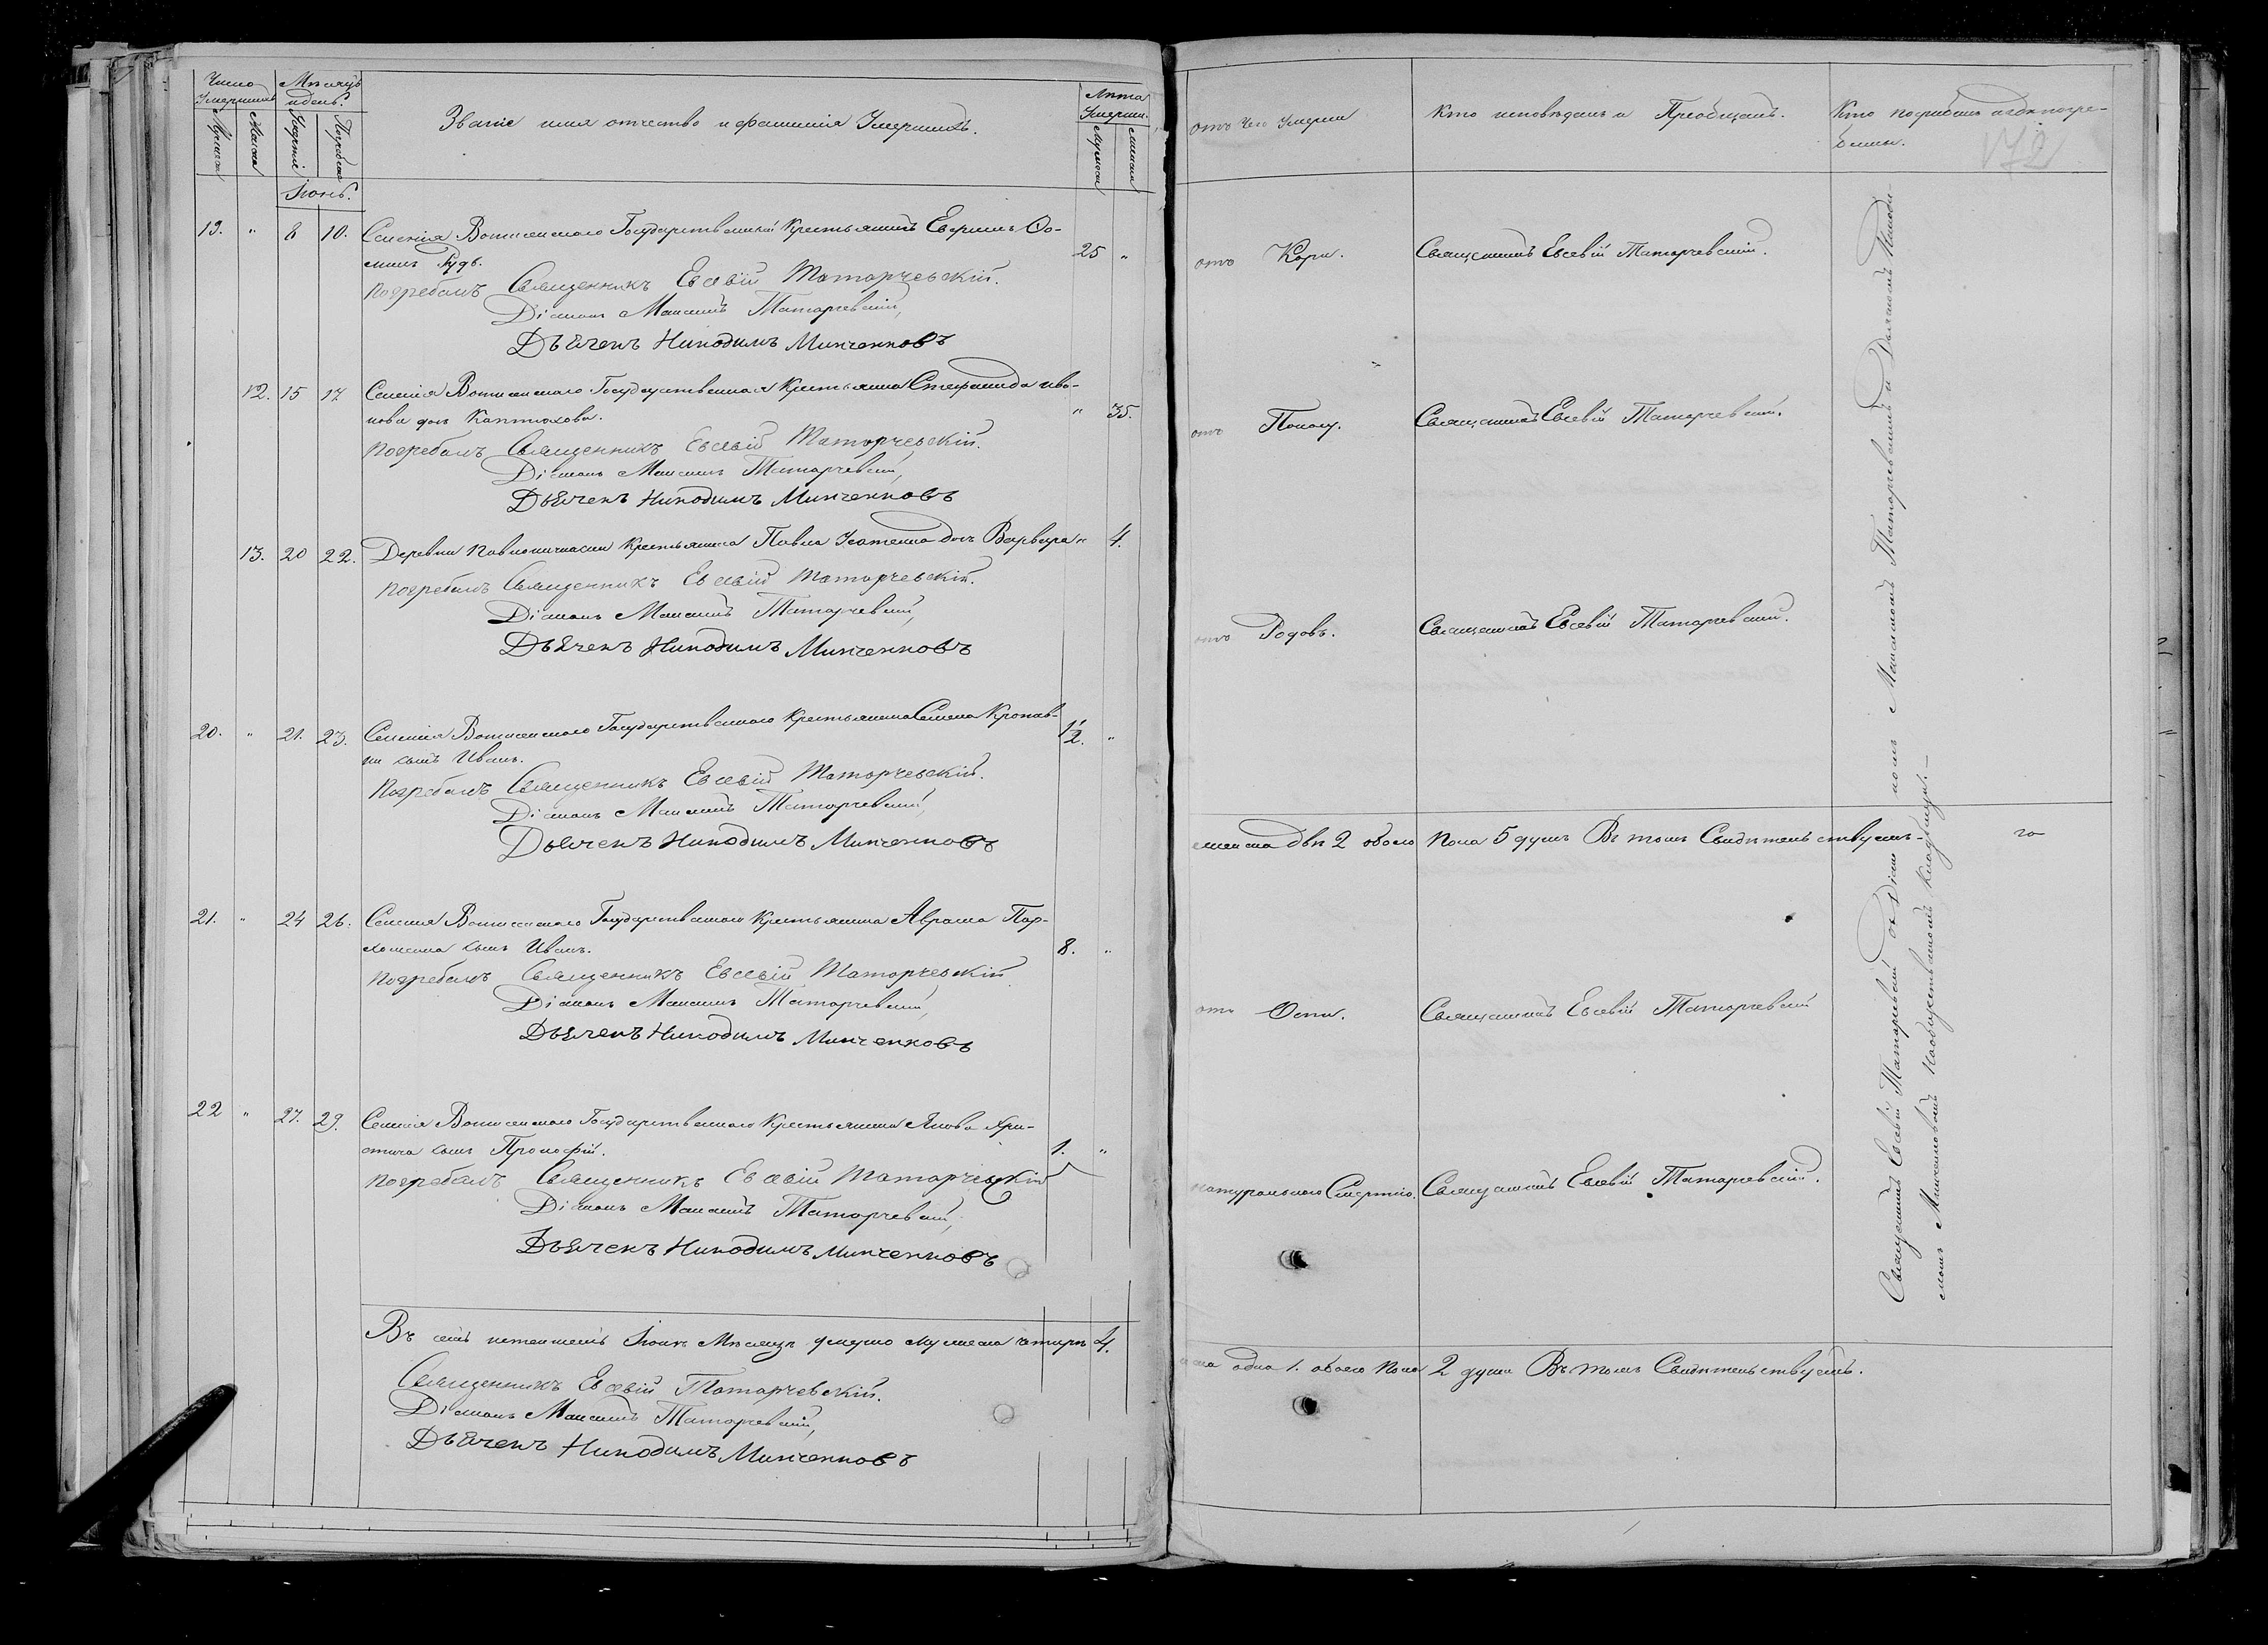 Число Умершихъ
Мѣсяцъ и день.
Званіе имя отчество и фамилія Умершихъ.
Лѣта Умерш.
Мужеска
Женска
Іюнь.
19. " 8 10. Селенія Государственный Крестьянинъ
25 "
Погребалъ Священникъ Евсевій Татарчевскій.
Діаконъ Татарчевскій,
Дьячекъ Никодимъ Минченковъ
12. 15 17 Селенія Государственная Крестьянка Стефанида Ива-
нова дочь Каптюхова. " 35.
Погребалъ Священникъ Евсевій Татарчевскій.
Діаконъ Татарчевскій,
Дьячекъ Никодимъ Минченковъ
13. 20 22. Деревни Крестьянина Павла дочь Варвара " 4.
Погребалъ Священникъ Евсевій Татарчевскій.
Діаконъ Татарчевскій,
Дьячекъ Никодимъ Минченковъ
20. " 21. 23. Селенія Государственнаго Крестьянина Семена
сынъ Иванъ. 1/2. "
Погребалъ Священникъ Евсевій Татарчевскій.
Діаконъ Татарчевскій,
Дьячекъ Никодимъ Минченковъ
21. " 24 26. Селенія Государственнаго Крестьянина Аврама Пар-
хоменка сынъ Иванъ. 8. "
Погребалъ Священникъ Евсевій Татарчевскій
Діаконъ Татарчевскій,
Дьячекъ Никодимъ Минченковъ
22 " 27. 29. Селенія Государственнаго Крестьянина Якова
сынъ Прокофій. 1. "
Погребалъ Священникъ Евсевій Татарчевскій
Діаконъ Татарчевскій,
Дьячекъ Никодимъ Минченковъ
Въ семъ Іюнѣ Мѣсяцѣ умерло мужеска четыре 4.
Священникъ Евсевій Татарчевскій.
Діаконъ Татарчевскій,
Дьячекъ Никодимъ Минченковъ
отъ чего Умерли
Кто исповѣдалъ и Пріобщалъ.
Кто погребалъ и гдѣ погре-
бены.
172
отъ Кори. Священникъ Евсевій Татарчевскій.
отъ Поносу. Священникъ Евсевій Татарчевскій.
отъ Родовъ. Священникъ Евсевій Татарчевскій.
женска двѣ 2 обоего пола 5 душъ Въ томъ Свидѣтельствуемъ.
отъ Оспи. Священникъ Евсевій Татарчевскій
натуральною Смертію. Священникъ Евсевій Татарчевскій.
одна 1. обоего пола 2 души Въ томъ Свидѣтельствуемъ.
Священникъ Евсевій Татарчевскій съ Діакономъ Татарчевскимъ и Дьячкомъ Никоди-
момъ Минченковымъ на общественномъ кладбищѣ.